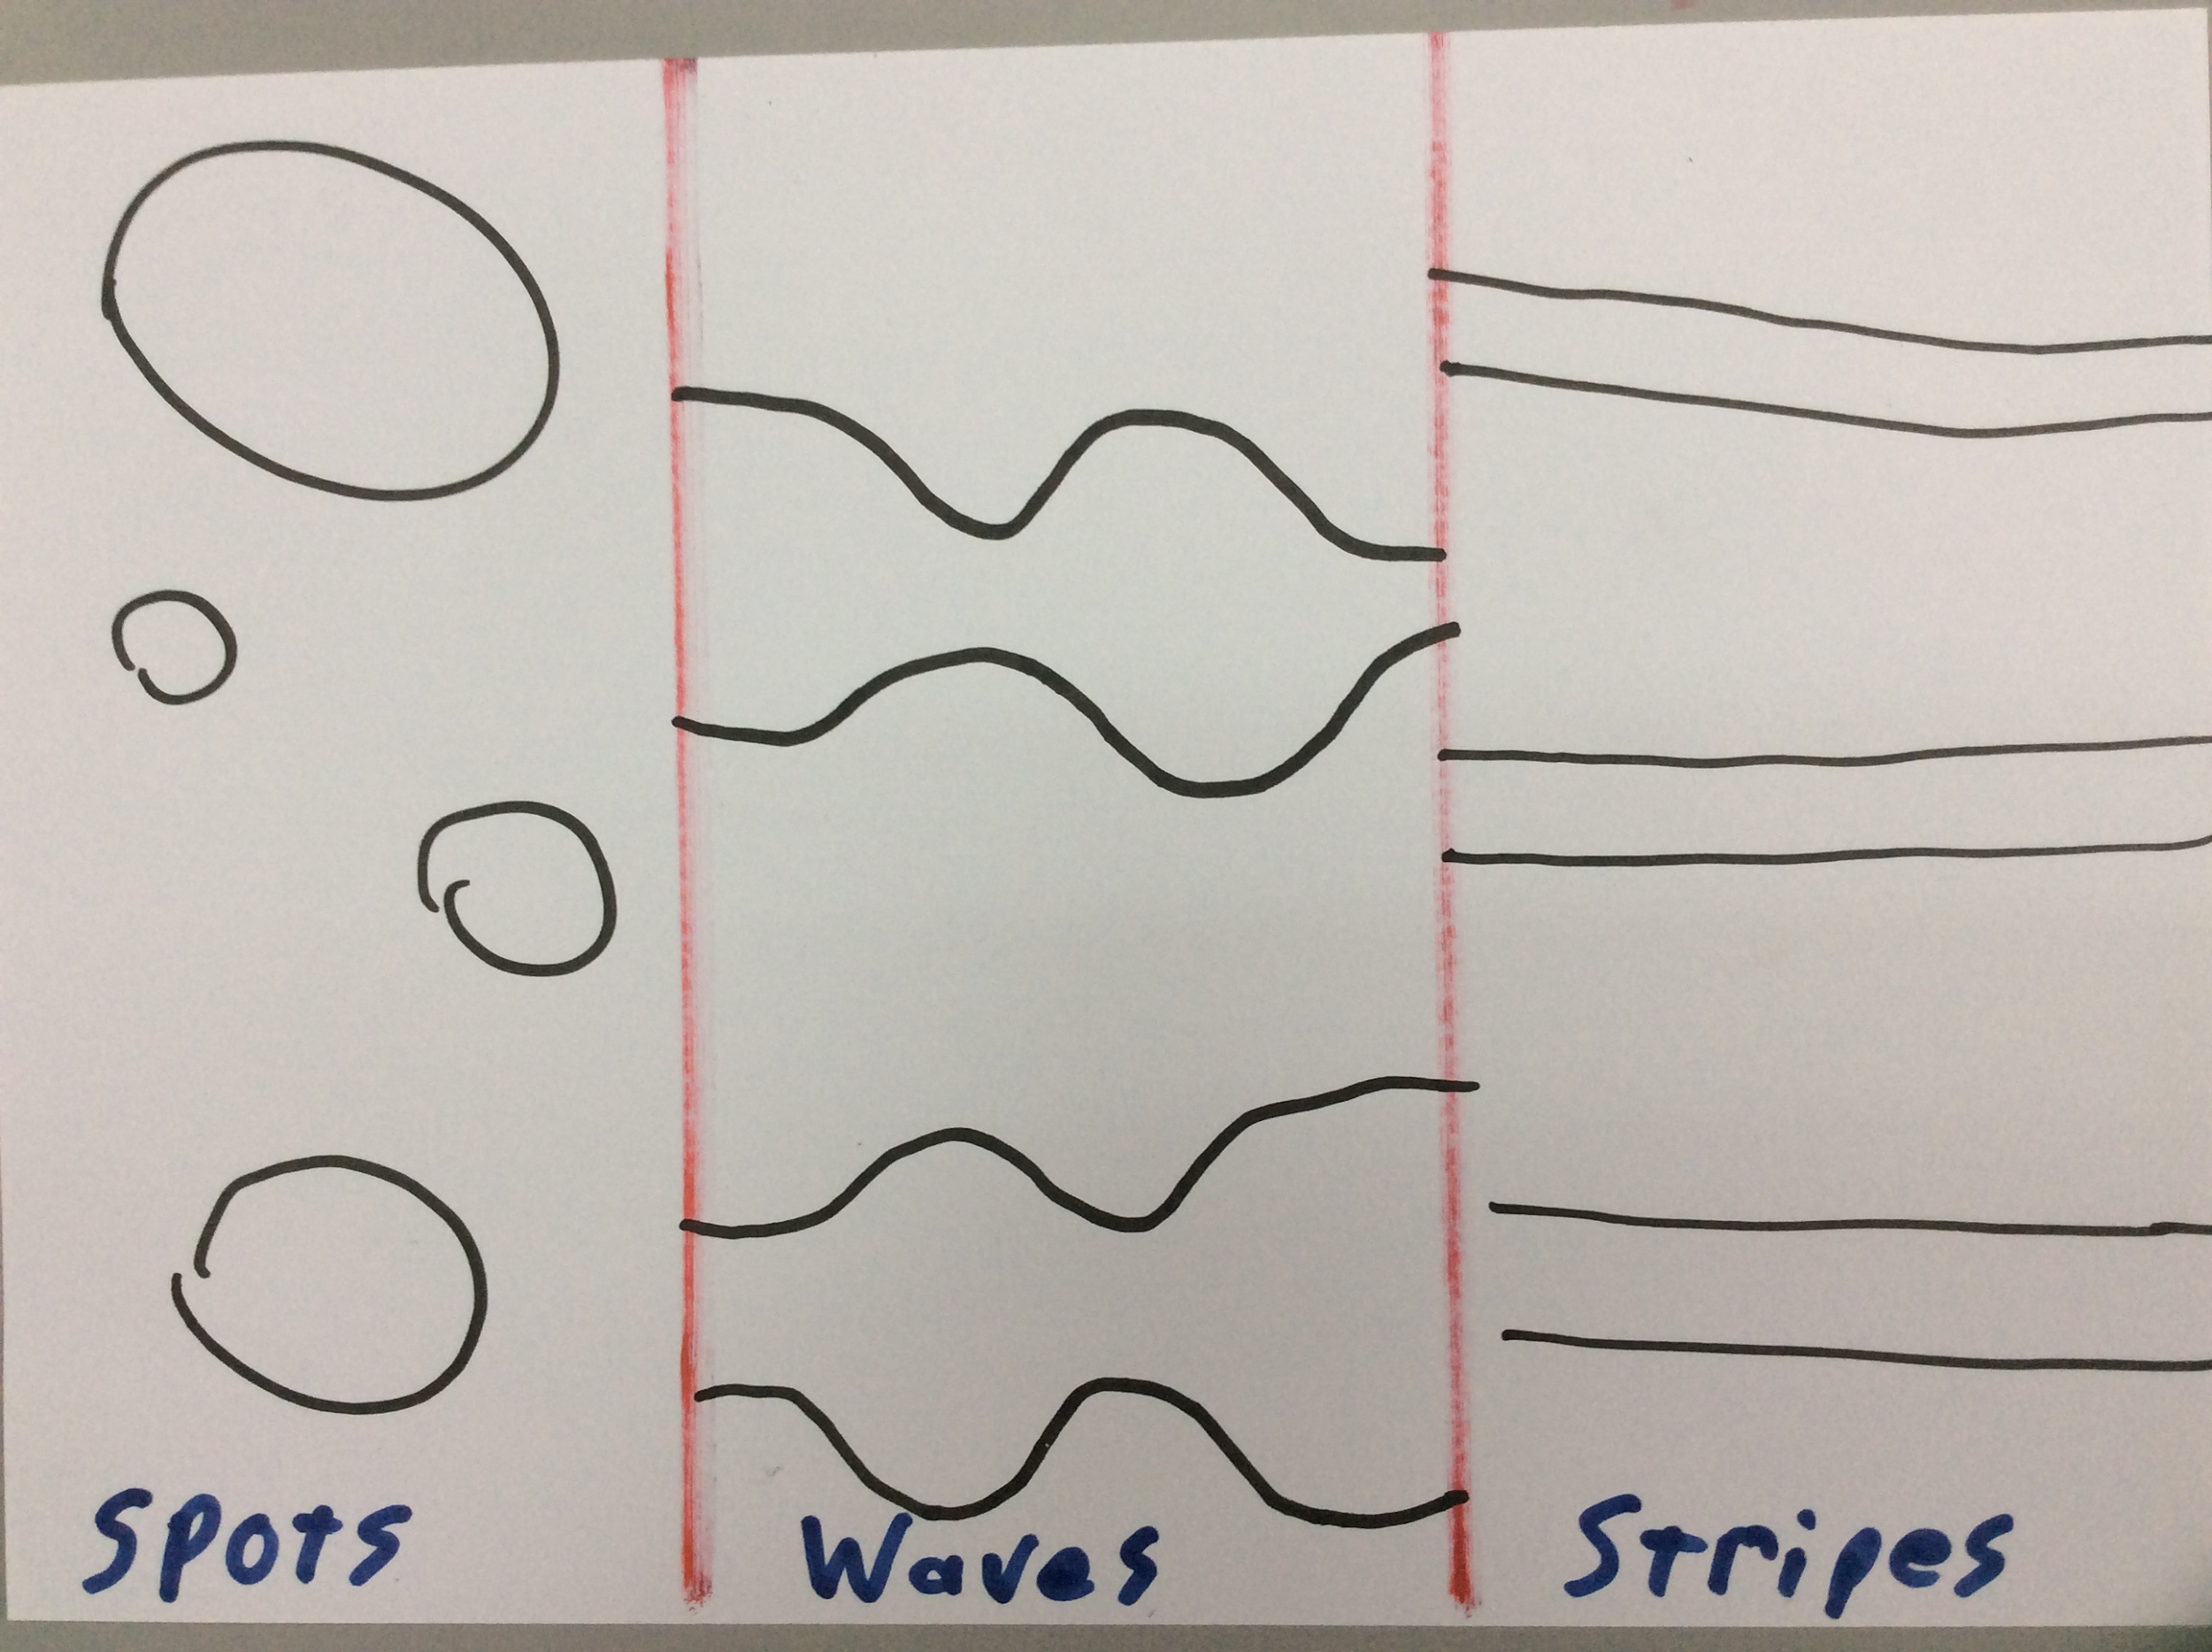 Spots Waves Stripes